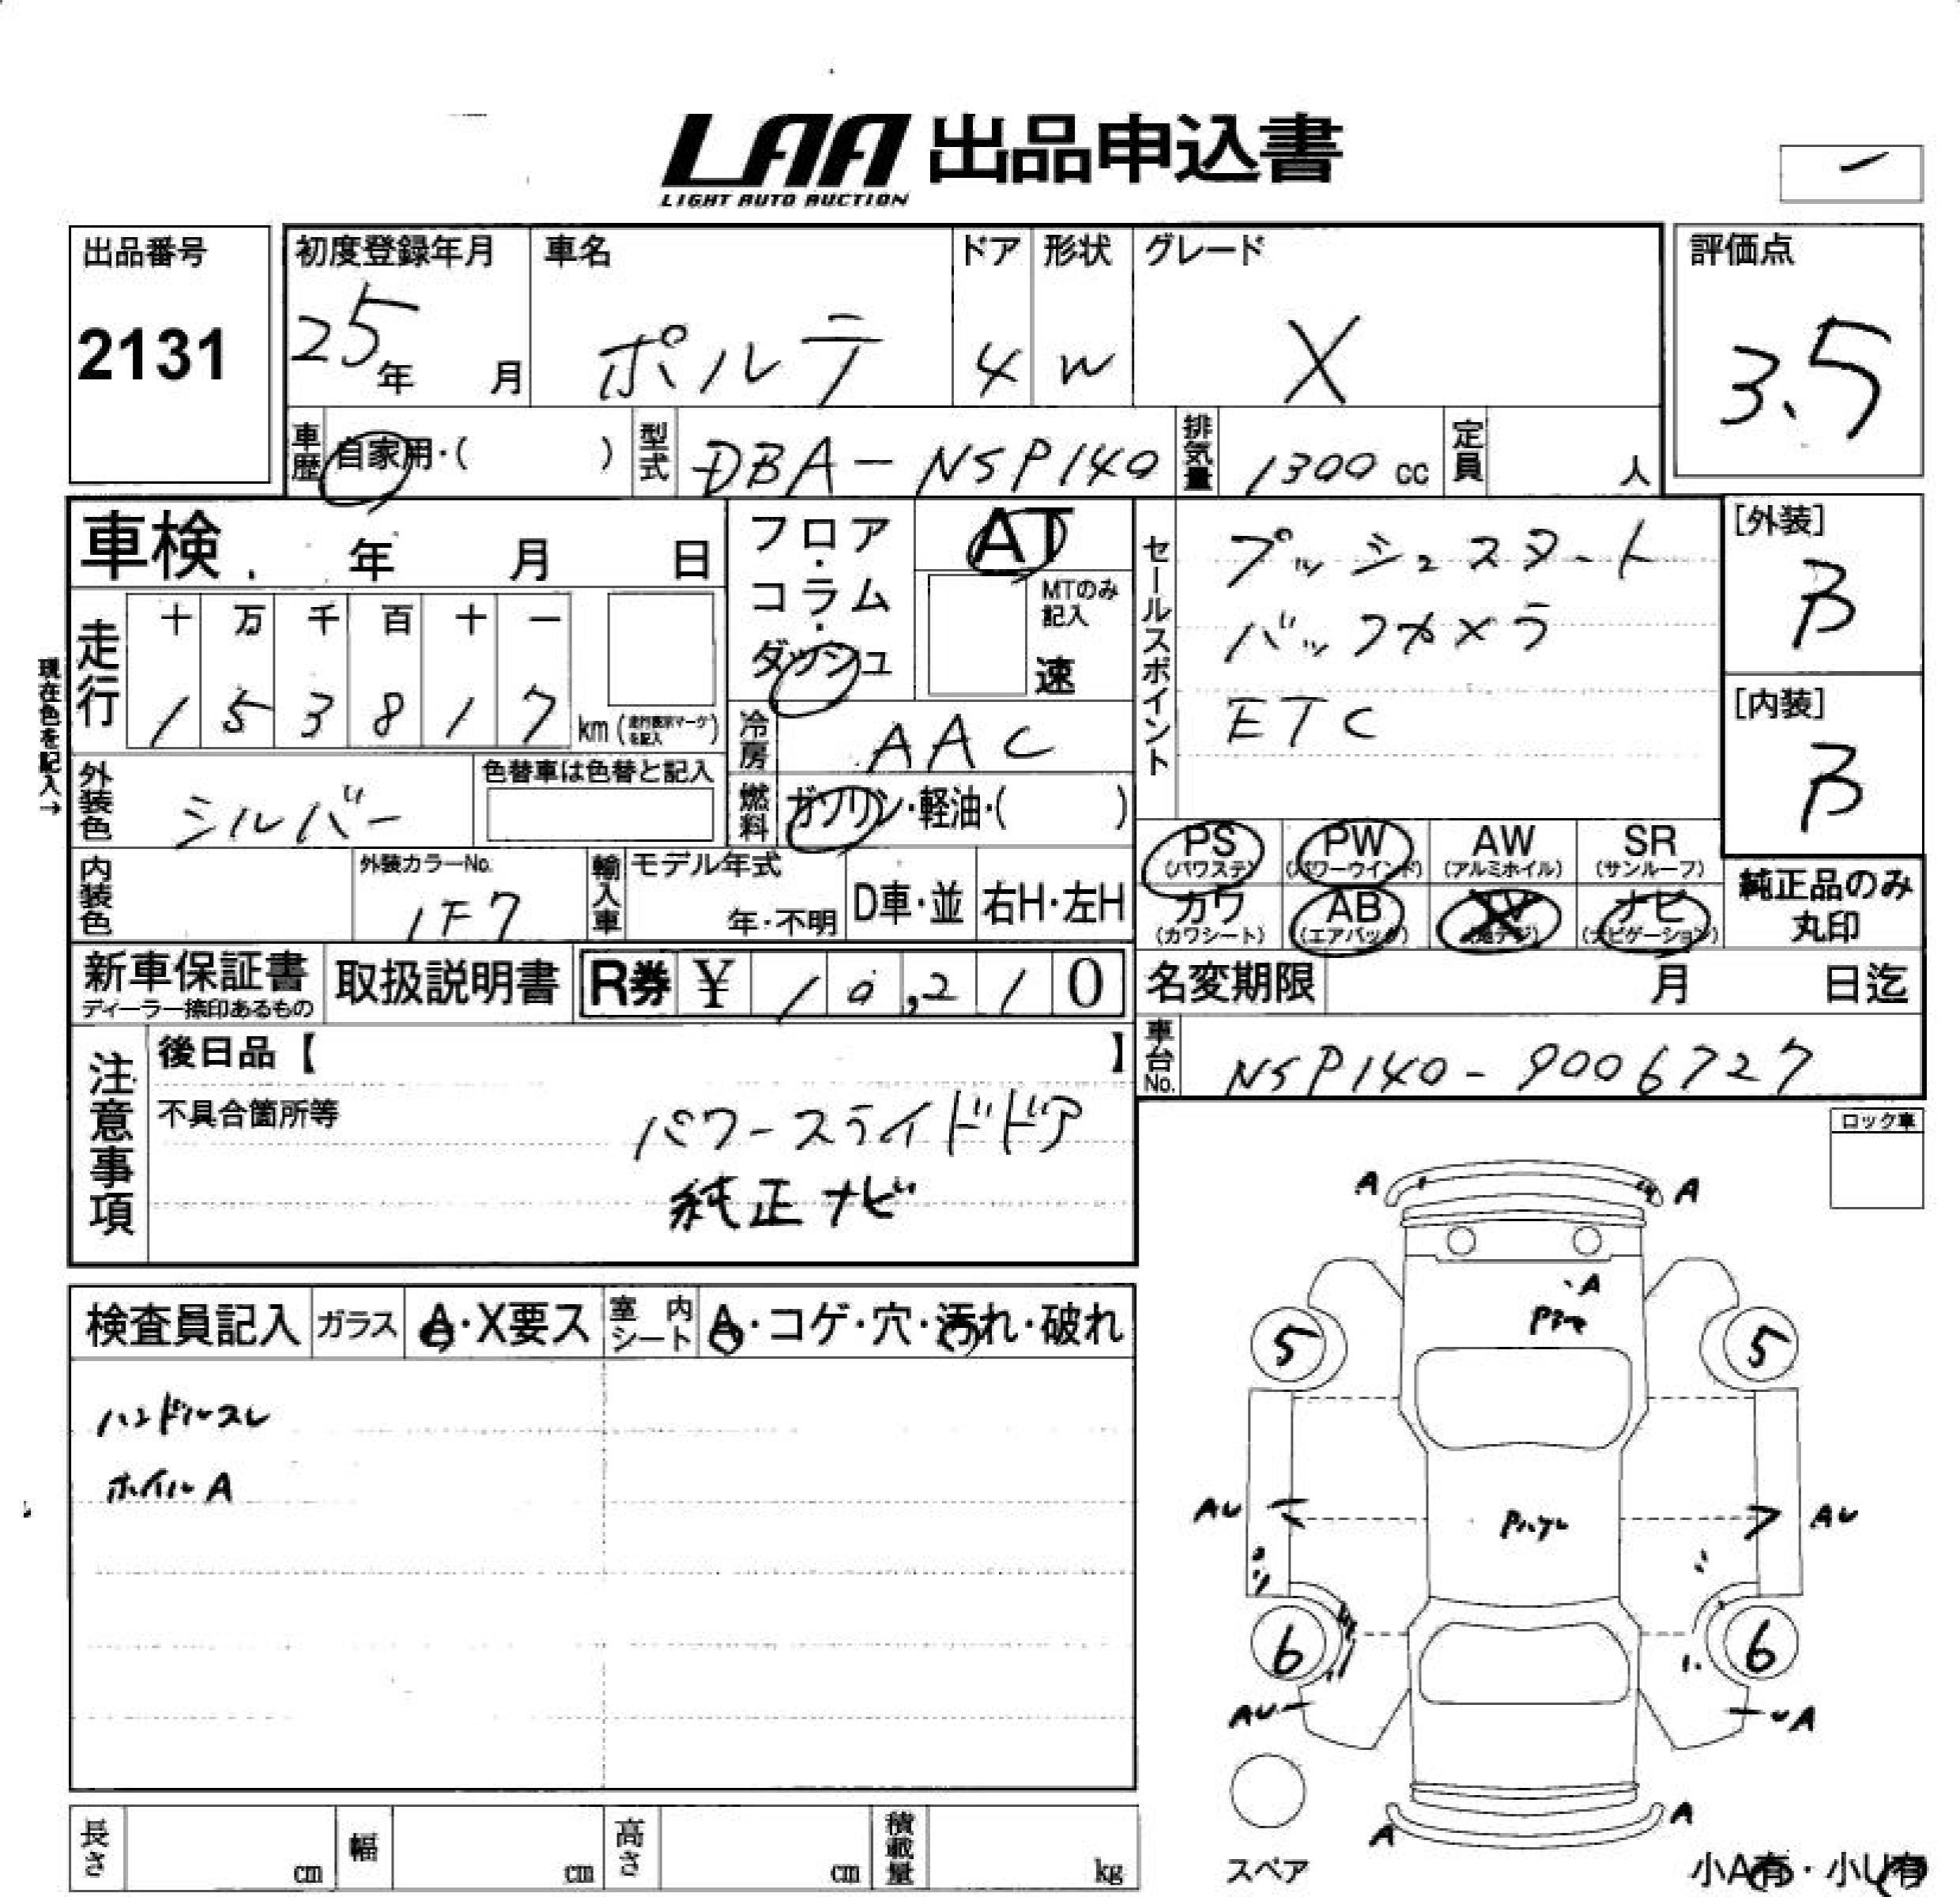 LAA 出品申込書
LIGHT AUTO AUCTION
出品番号
2131
初度登録年月
25年 月
車名
ポルテ
ドア
4
形状
W
グレード
X
評価点
3.5
車歴 自家用・( )
型式 DBA-NSP140
排気量 1300 cc
定員 人
車検 年 月 日
フロア・コラム・ダッシュ
AT
MTのみ記入
速
セールスポイント
プッシュスタート
バックカメラ
ETC
[外装]
B
[内装]
B
現在色を記入→
走行
十 万 千 百 十 一
1 5 3 8 1 7 km (走行表示マークを記入)
冷房 AAC
外装色 シルバー
色替車は色替と記入
燃料 ガソリン・軽油・( )
PS (パワステ)
PW (パワーウインド)
AW (アルミホイル)
SR (サンルーフ)
内装色
外装カラーNo.
1F7
輸入車
モデル年式
年・不明
D車・並
右H・左H
カワ (カワシート)
AB (エアバック)
TV (地デジ)
ナビ (ナビゲーション)
純正品のみ丸印
新車保証書
ディーラー捺印あるもの
取扱説明書
R券 ¥ 10,210
名変期限 月 日迄
車台No. NSP140-9006727
注意事項
後日品【 】
不具合箇所等
パワースライドドア
純正ナビ
ロック車
検査員記入
ガラス A・X要ス
室内シート A・コゲ・穴・汚れ・破れ
ハンドルスレ
ホイルA
A A
A
5 5
AU AU
6 6
AU UA
A A
スペア
小A有・小U有
長さ cm
幅 cm
高さ cm
積載量 kg